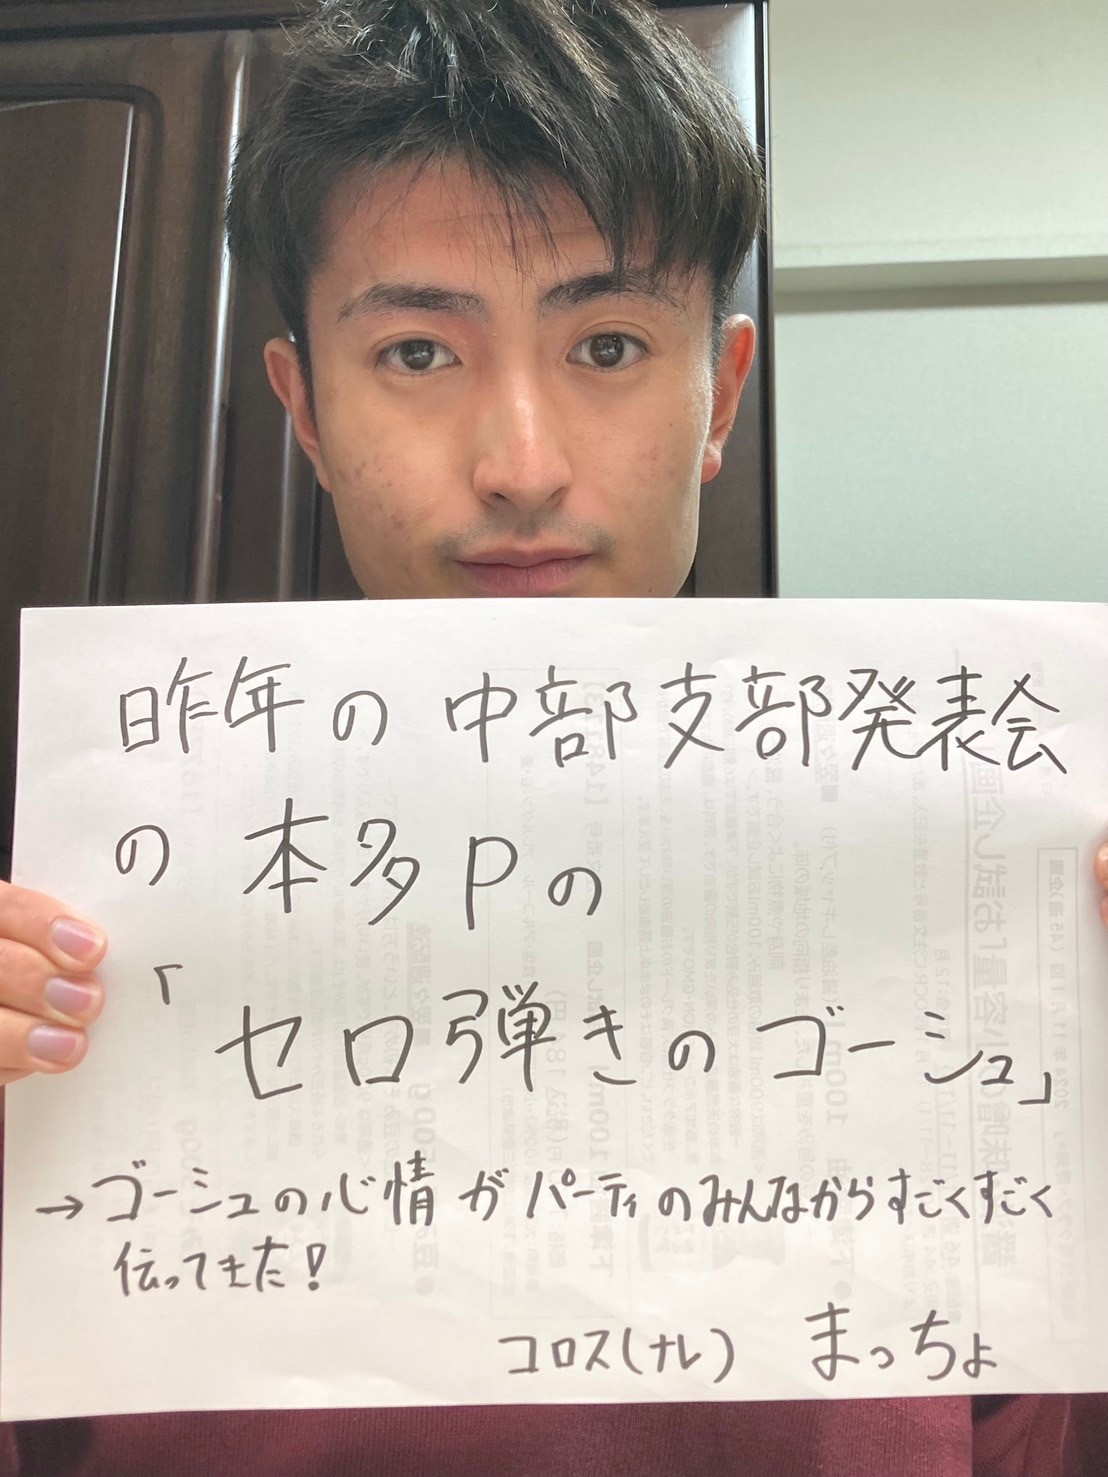 昨年の中部支部発表会
の本多Pの
「セロ弾きのゴーシュ」
→ゴーシュの心情がパーティのみんなからすごくすごく
伝ってきた!
コロス(ナレ) まっちょ